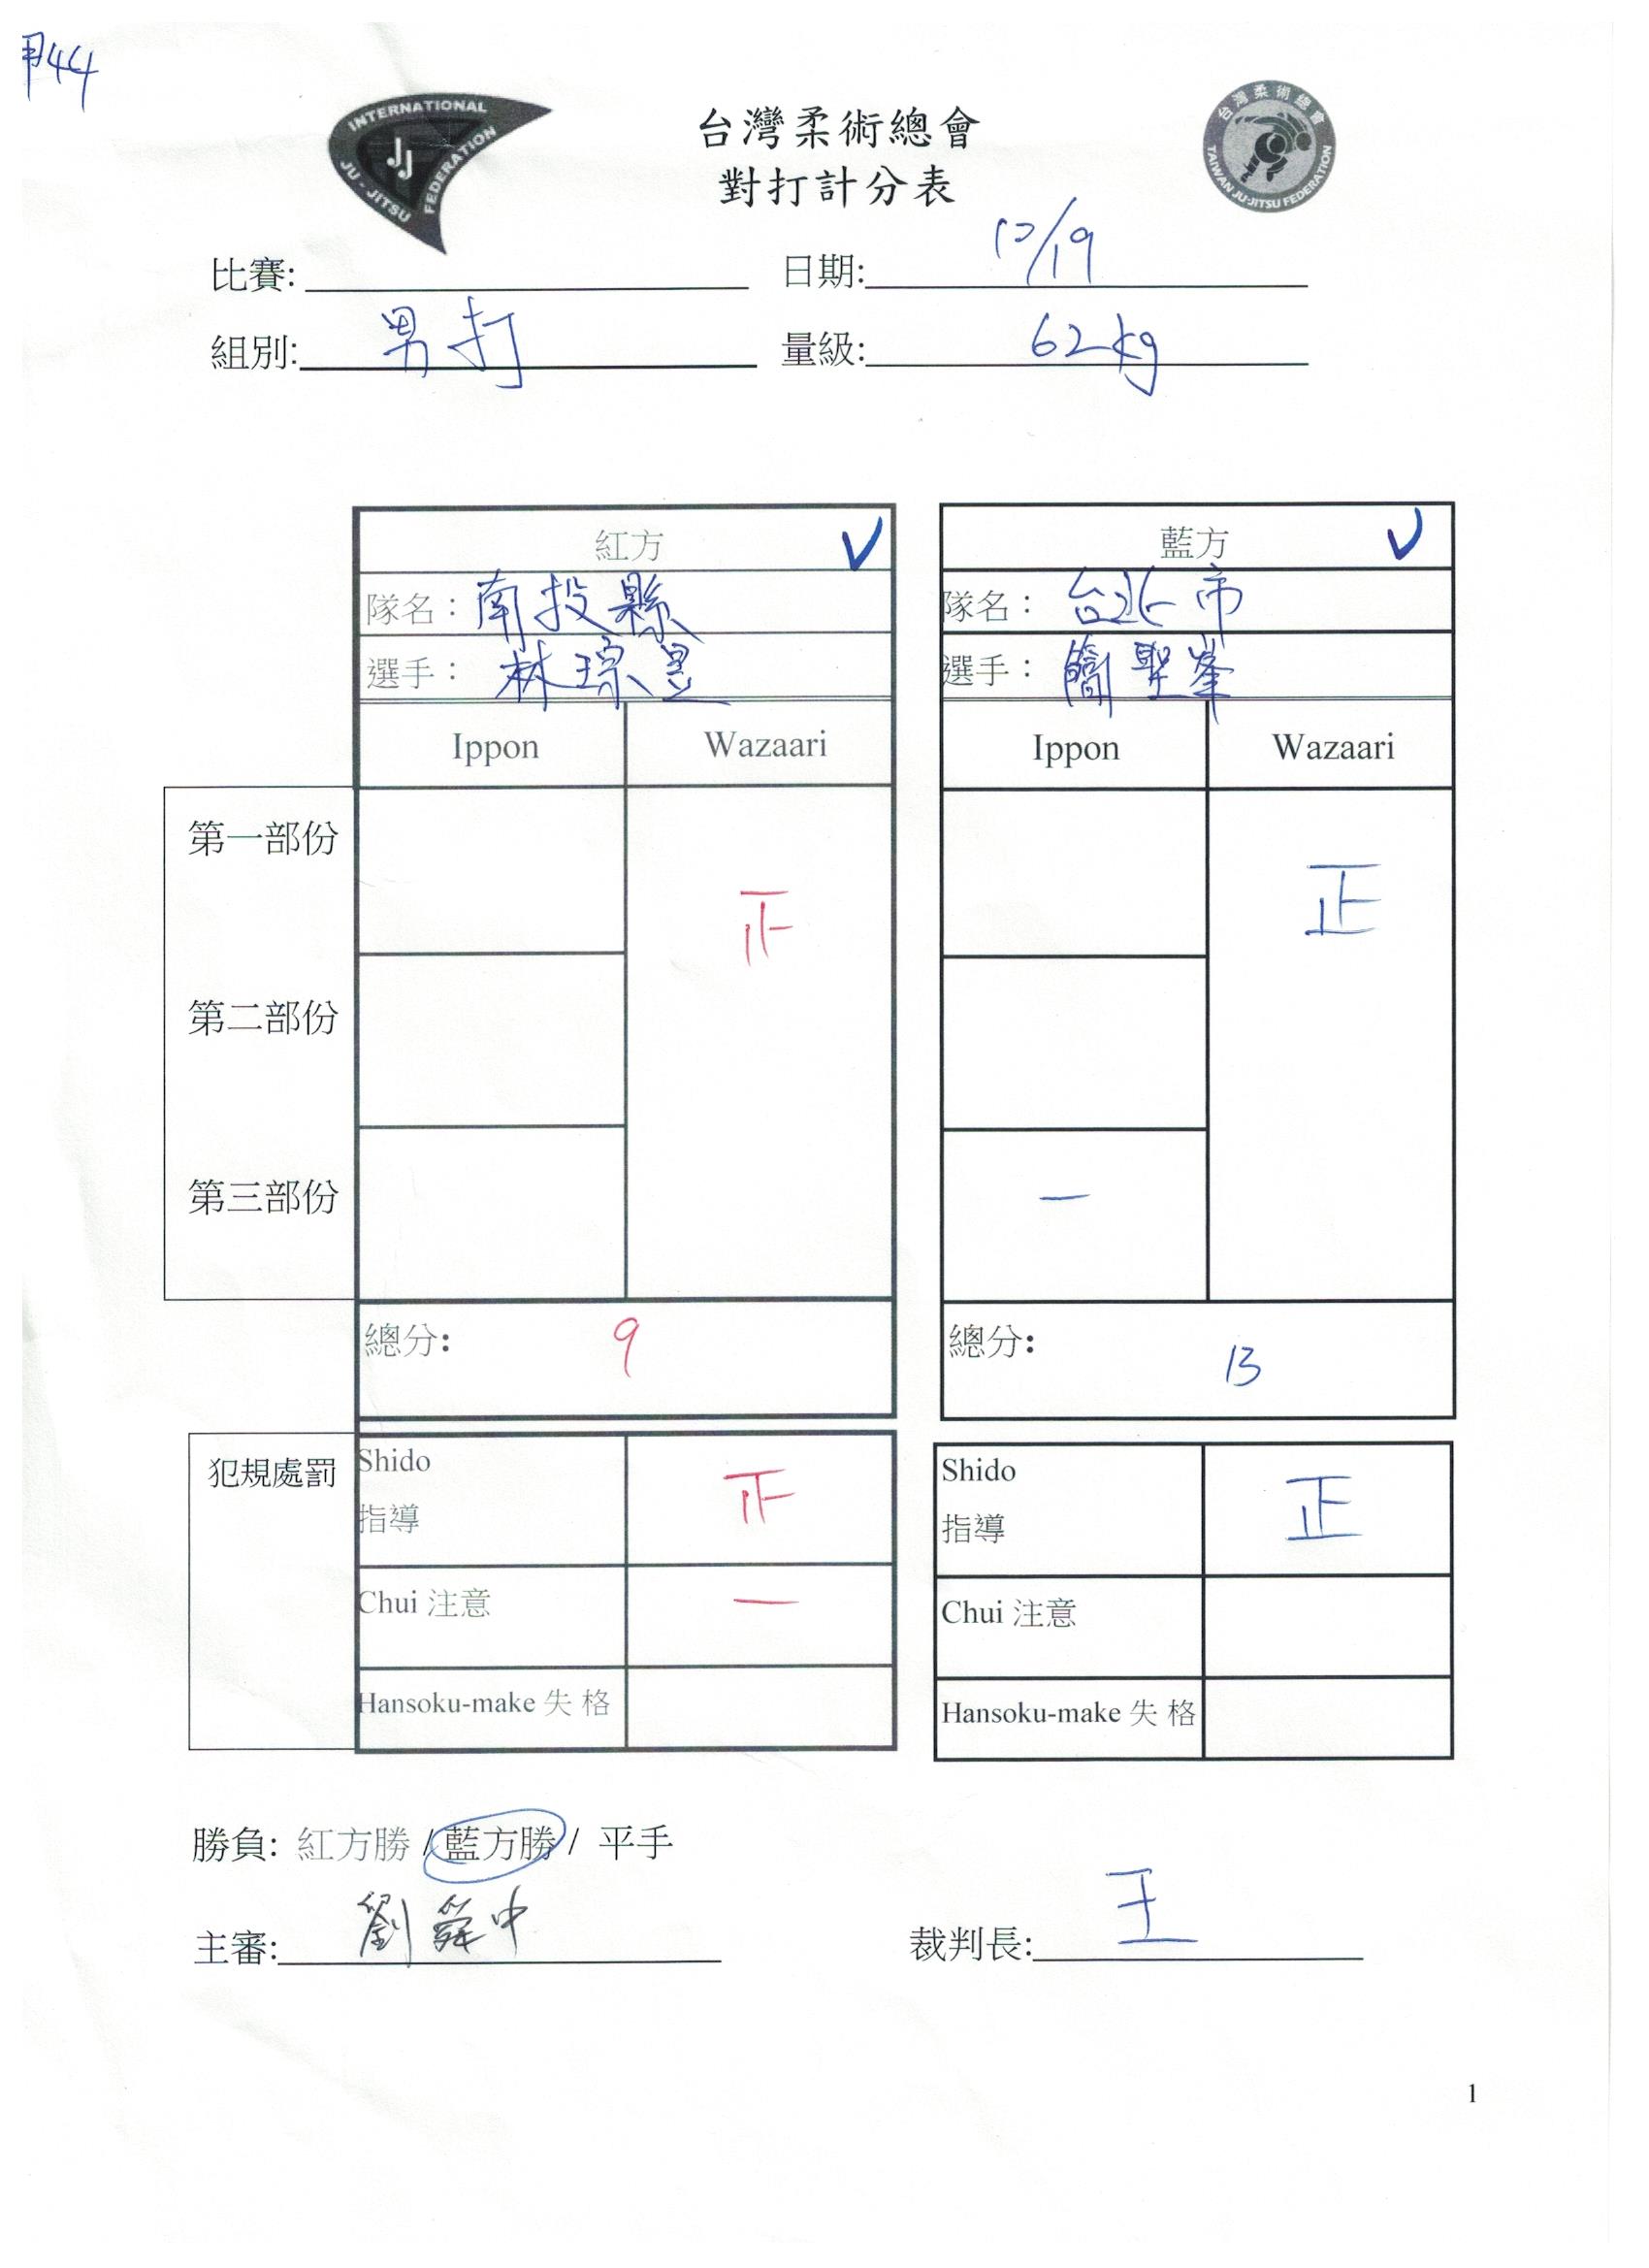 甲44
INTERNATIONAL JU-JITSU FEDERATION
JJ
台灣柔術總會
TAIWAN JU-JITSU FEDERATION
台灣柔術總會
對打計分表
比賽: 日期: 12/19
組別: 男打 量級: 62kg
紅方 V 藍方 V
隊名: 南投縣 隊名: 台北市
選手: 林琮昱 選手: 簡聖峯
Ippon Wazaari Ippon Wazaari
第一部份
正
第二部份
第三部份 一
總分: 9 總分: 13
犯規處罰
Shido 指導 Shido 指導 正
Chui 注意 一 Chui 注意
Hansoku-make 失 格 Hansoku-make 失 格
勝負: 紅方勝 / 藍方勝 / 平手
主審: 劉舜中 裁判長: 王
1